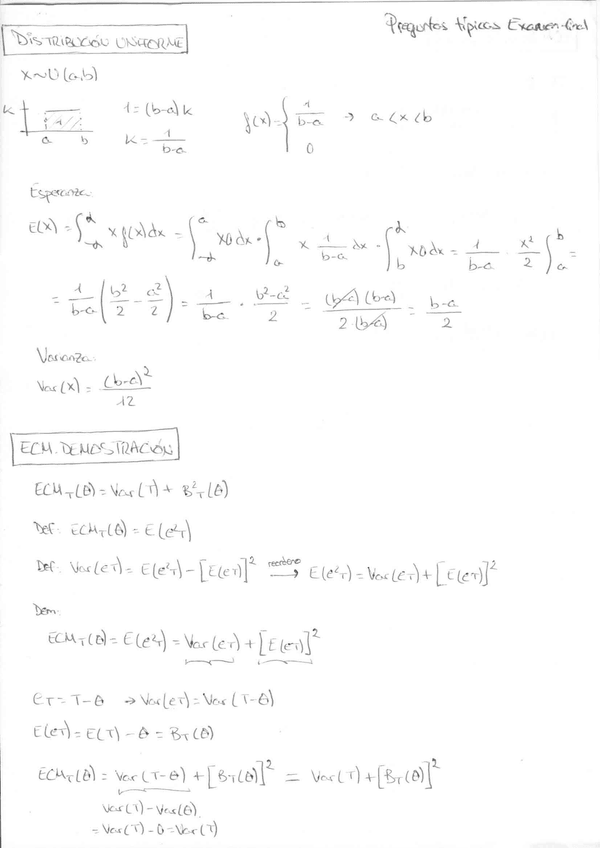 Preguntas típicas Examen-final
DISTRIBUCIÓN UNIFORME
X~U(a,b)
K 1 a b 1=(b-a)k f(x)={ 1/(b-a) → a<x<b
K= 1/(b-a) 0
Esperanza:
E(X)= ∫_{-α}^{α} x f(x)dx = ∫_{-α}^{a} x0dx · ∫_{a}^{b} x 1/(b-a) dx · ∫_{b}^{α} x0dx = 1/(b-a) · x²/2 ∫_{a}^{b} =
= 1/(b-a) (b²/2 - a²/2) = 1/(b-a) · (b²-a²)/2 = (b-a)(b-a)/2(b-a) = (b-a)/2
Varianza:
Var(X)= (b-a)²/12
ECM. DEMOSTRACIÓN
ECM_T(θ)=Var(T)+ B²_T(θ)
Def: ECM_T(θ)=E(e²_T)
Def: Var(e_T)= E(e²_T)-[E(e_T)]² reordeno → E(e²_T)=Var(e_T)+[E(e_T)]²
Dem:
ECM_T(θ)=E(e²_T)=Var(e_T)+[E(e_T)]²
e_T=T-θ → Var(e_T)=Var(T-θ)
E(e_T)=E(T)-θ=B_T(θ)
ECM_T(θ)=Var(T-θ)+[B_T(θ)]² = Var(T)+[B_T(θ)]²
Var(T)-Var(θ)
=Var(T)-0=Var(T)